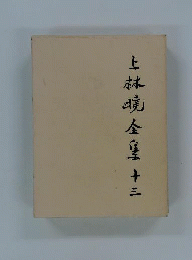 上林曉全集十三